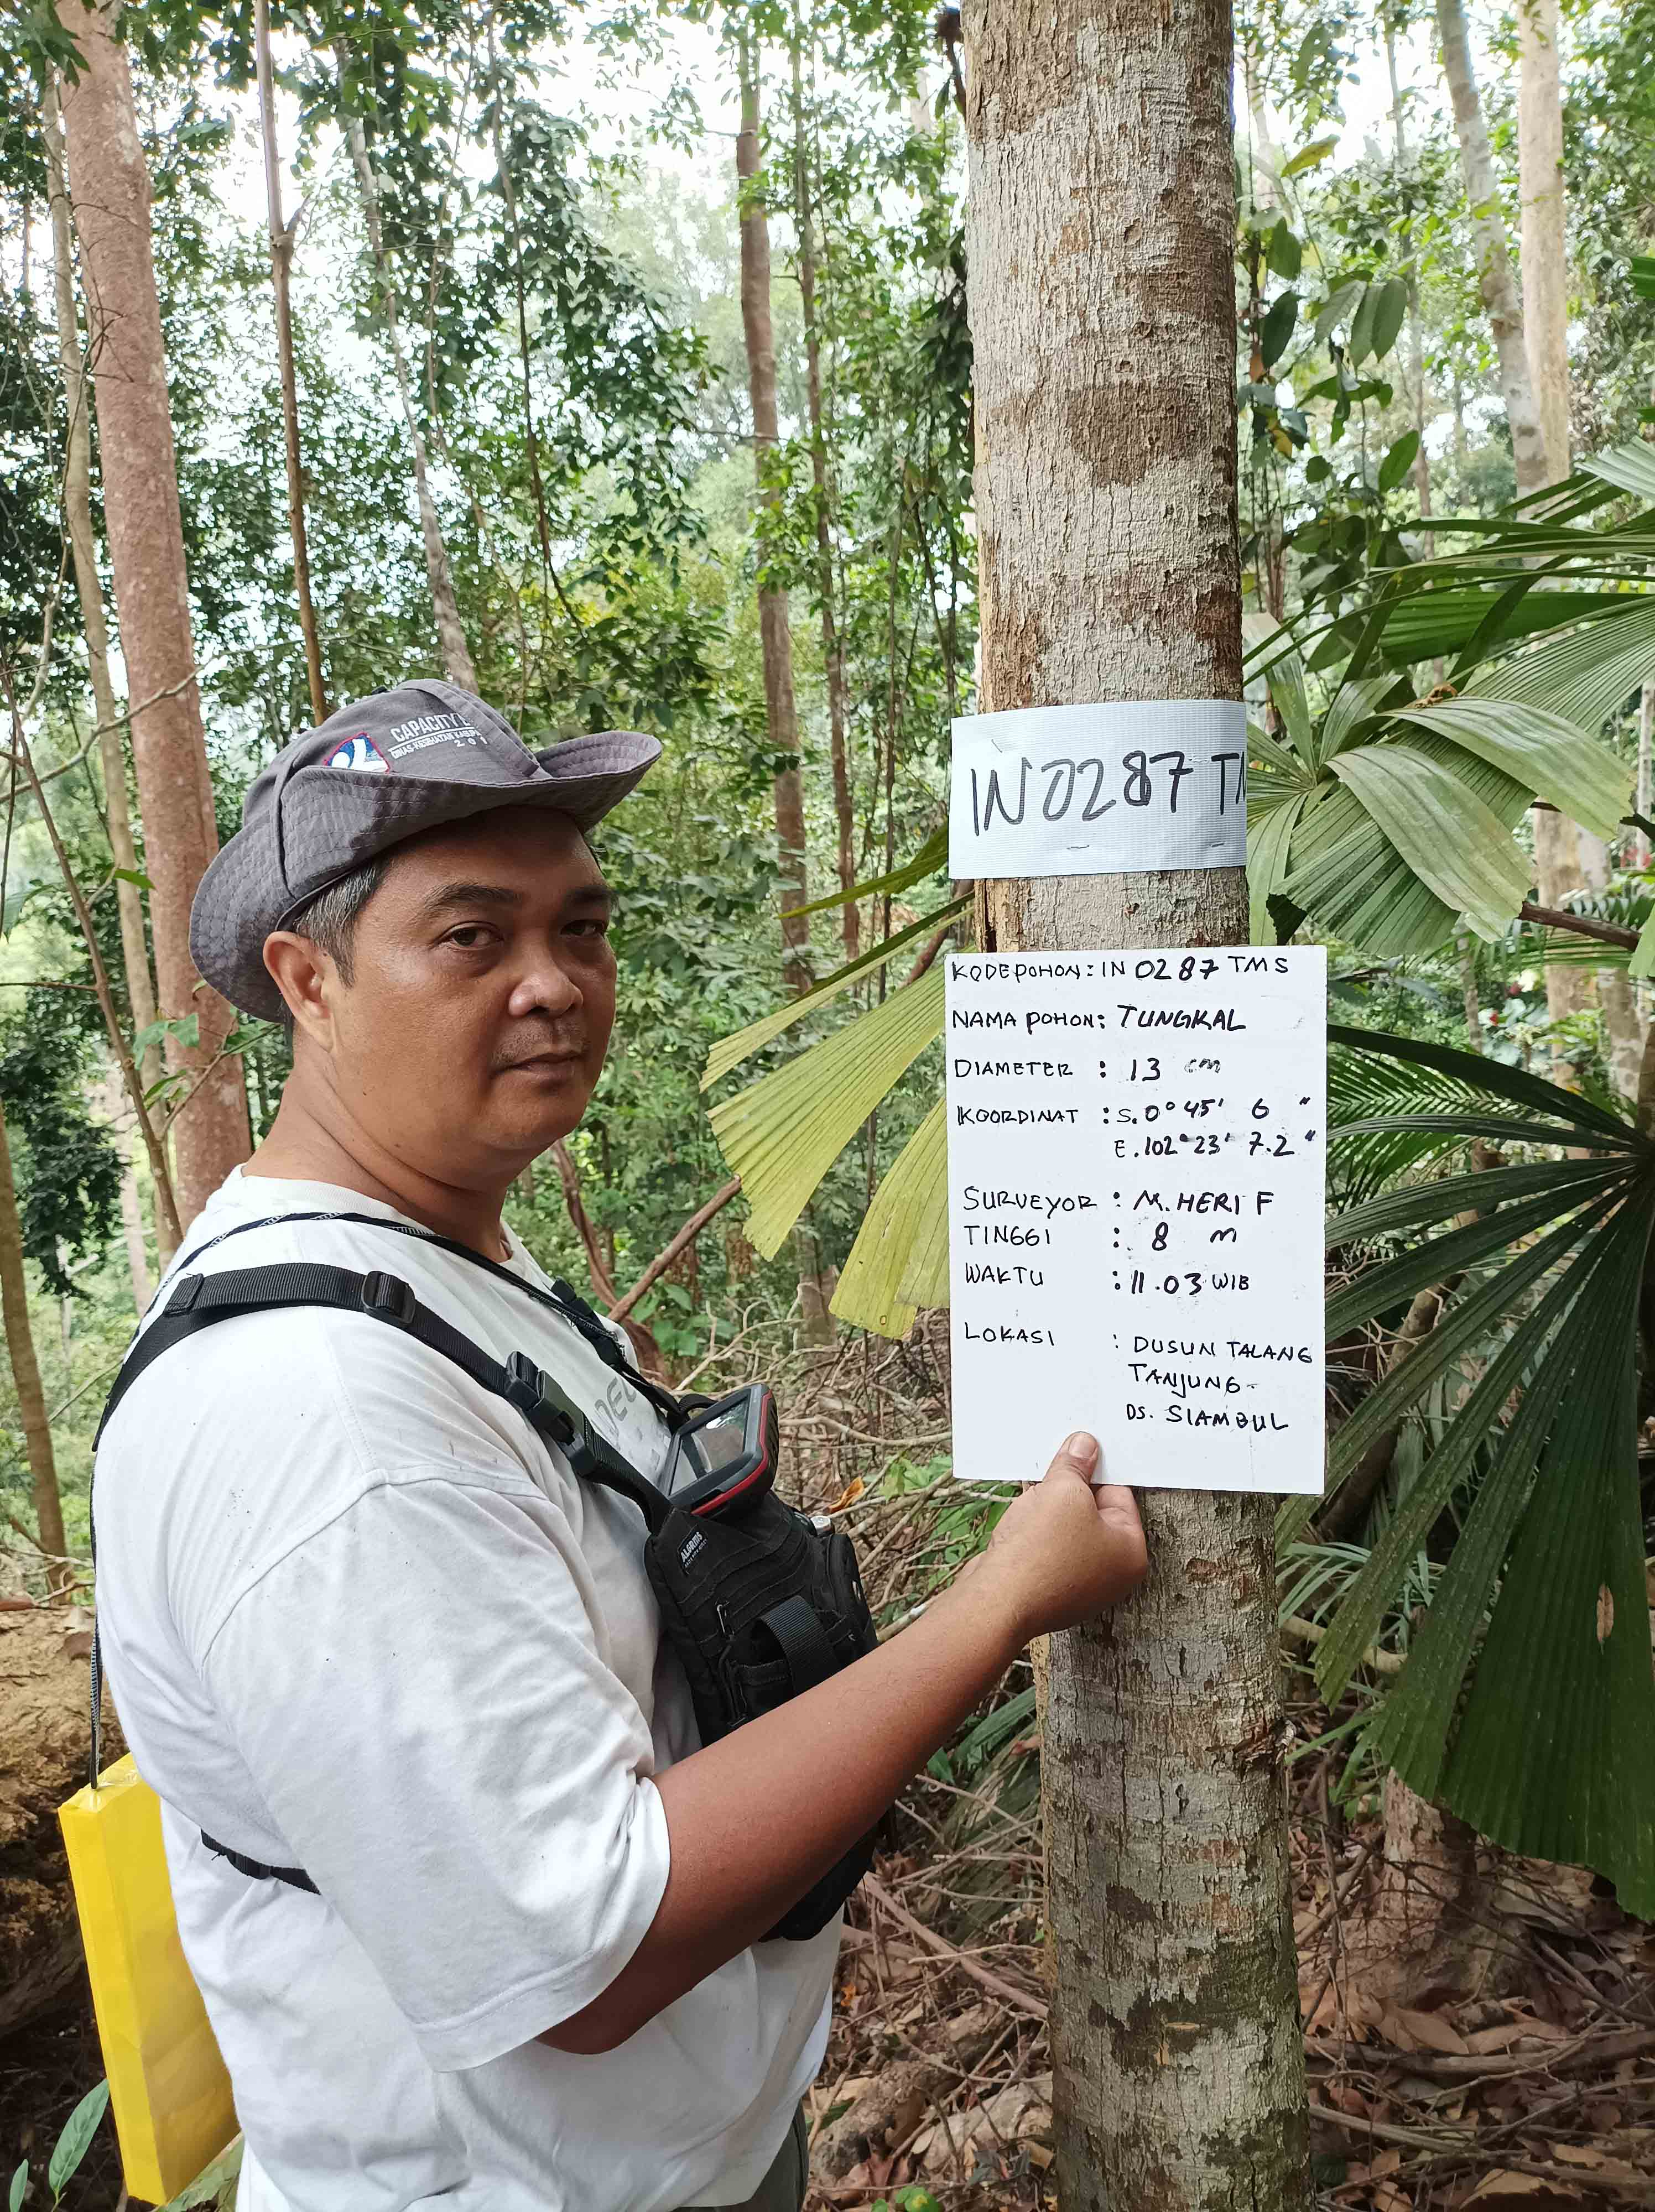 CAPACITY
DINAS KESEHATAN
201
IN 0287 TM
KODE POHON : IN 0287 TMS
NAMA POHON : TUNGKAL
DIAMETER : 13 cm
KOORDINAT : S. 0° 45' 6 "
E. 102° 23' 7.2 "
SURVEYOR : M. HERI F
TINGGI : 8 m
WAKTU : 11.03 WIB
LOKASI : DUSUN TALANG
TANJUNG-
DS. SIAMBUL